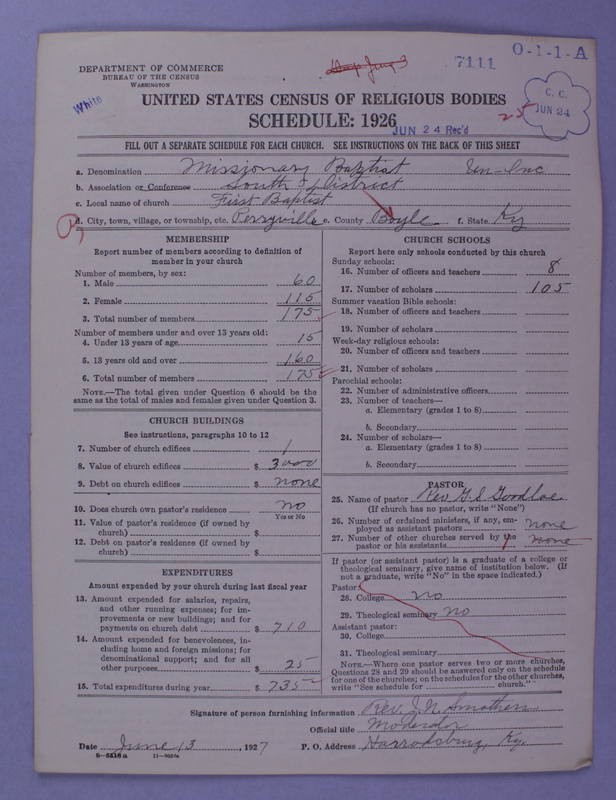 DEPARTMENT OF COMMERCE
BUREAU OF THE CENSUS
WASHINGTON
7111
O-1-1-A
White
C. C.
JUN 24
25
UNITED STATES CENSUS OF RELIGIOUS BODIES
SCHEDULE: 1926
JUN 24 Rec'd
FILL OUT A SEPARATE SCHEDULE FOR EACH CHURCH. SEE INSTRUCTIONS ON THE BACK OF THIS SHEET
a. Denomination Missionary Baptist Un-Inc
b. Association or Conference South District
c. Local name of church First Baptist
d. City, town, village, or township, etc. Perryville e. County Boyle f. State Ky
MEMBERSHIP
Report number of members according to definition of
member in your church
Number of members, by sex:
1. Male 60
2. Female 115
3. Total number of members 175
Number of members under and over 13 years old:
4. Under 13 years of age 15
5. 13 years old and over 160
6. Total number of members 175
NOTE.—The total given under Question 6 should be the
same as the total of males and females given under Question 3.
CHURCH BUILDINGS
See instructions, paragraphs 10 to 12
7. Number of church edifices 1
8. Value of church edifices $ 3000
9. Debt on church edifices $ none
10. Does church own pastor's residence? no
Yes or No
11. Value of pastor's residence (if owned by
church) $
12. Debt on pastor's residence (if owned by
church) $
EXPENDITURES
Amount expended by your church during last fiscal year
13. Amount expended for salaries, repairs,
and other running expenses; for im-
provements or new buildings; and for
payments on church debt $ 710
14. Amount expended for benevolences, in-
cluding home and foreign missions; for
denominational support; and for all
other purposes $ 25
15. Total expenditures during year $ 735
CHURCH SCHOOLS
Report here only schools conducted by this church
Sunday schools:
16. Number of officers and teachers 8
17. Number of scholars 105
Summer vacation Bible schools:
18. Number of officers and teachers
19. Number of scholars
Week-day religious schools:
20. Number of officers and teachers
21. Number of scholars
Parochial schools:
22. Number of administrative officers
23. Number of teachers—
a. Elementary (grades 1 to 8)
b. Secondary
24. Number of scholars—
a. Elementary (grades 1 to 8)
b. Secondary
PASTOR
25. Name of pastor Rev G. S. Goodloe
(If church has no pastor, write "None")
26. Number of ordained ministers, if any, em-
ployed as assistant pastors none
27. Number of other churches served by the
pastor or his assistants 1 none
If pastor (or assistant pastor) is a graduate of a college or
theological seminary, give name of institution below. (If
not a graduate, write "No" in the space indicated.)
Pastor:
28. College no
29. Theological seminary no
Assistant pastor:
30. College
31. Theological seminary
NOTE.—Where one pastor serves two or more churches,
Questions 28 and 29 should be answered only on the schedule
for one of the churches; on the schedules for the other churches,
write "See schedule for church."
Signature of person furnishing information Rev. J. N. Smothers
Official title Moderator
Date June 13, 1927 P. O. Address Harrodsburg, Ky.